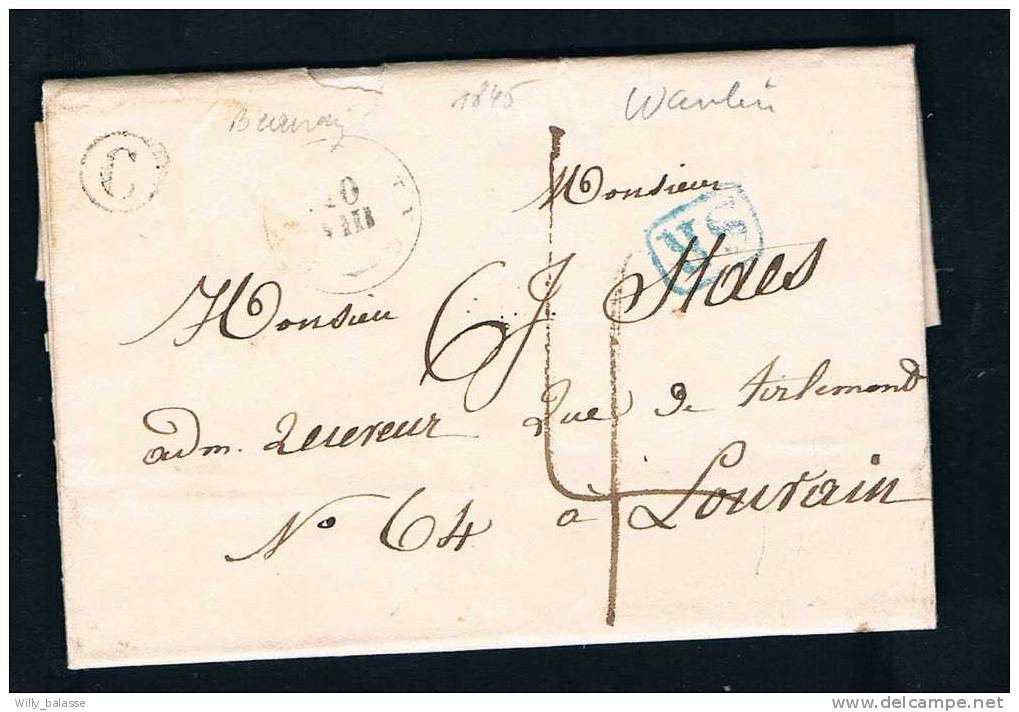 1845 Wanlin
C
Monsieur
SR
Monsieur J. Staes
adm. Receveur Rue de tirlemond
N° 64 à Louvain
4
Willy_balasse
www.delcampe.net